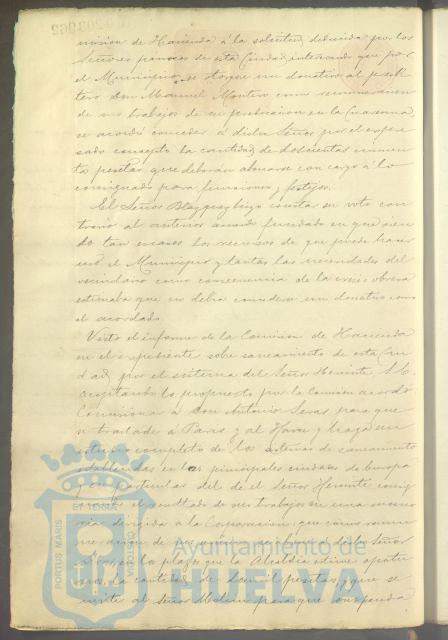 misión de Hacienda á la solicitud deducida por los
Señores parrocos de esta Ciudad interesando que por
el Municipio se otorgue un donativo al presbí-
tero Don Manuel Montero como remuneracion
de sus trabajos de su predicacion en la Cuaresma,
se acordó conceder á dicho Señor por el expre-
sado concepto la cantidad de doscientas cincuen-
ta pesetas que deberán abonarse con cargo á lo
consignado para funciones y festejos.
El Señor hizo constar su voto con-
trario al anterior acuerdo fundado en que sien-
do tan escasos los recursos de que puede hacer
uso el Municipio y tantas las necesidades del
vecindario como consecuencia de la crisis obrera
estimaba que no debia concederse un donativo como
el acordado.
Visto el informe de la Comision de Hacienda
en el expediente sobre saneamiento de esta Ciu-
dad por el sistema del Señor S. E.
aceptando lo propuesto por la Comisión acordó
Comisionar á Don Antonio para que
se traslade á Paris y al Havre y haga un
estudio completo de los sistemas de saneamiento
establecidos en las principales ciudades de Europa
y en particular del de el Señor
el resultado de sus trabajos en una memo-
ria dirigida á la Corporacion, que como remu-
neracion de sus se abone á dicho Señor
plazos que la Alcaldia estime oportu-
nos la cantidad de dos mil pesetas, y que se
invite al Señor para que suspenda
PORTUS MARIS
ET TERRE
CUSTODIA
Ayuntamiento de
HUELVA